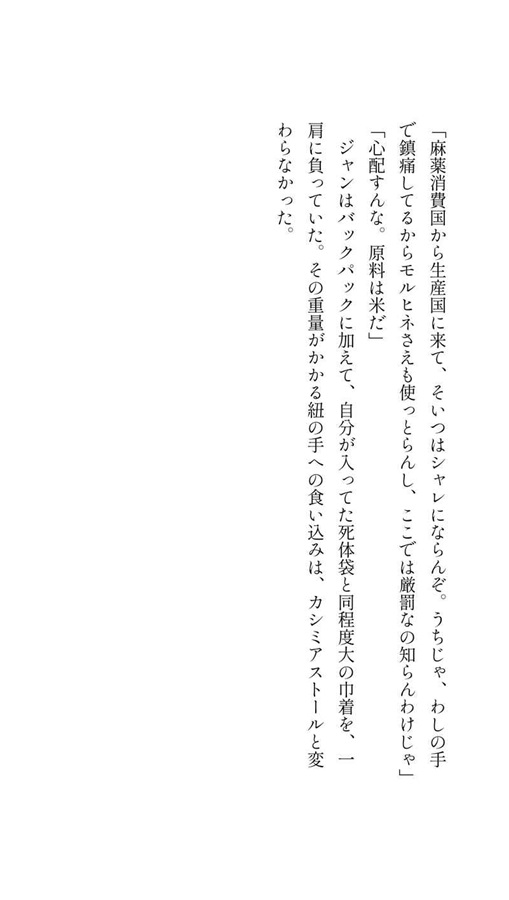 「麻薬消費国から生産国に来て、そいつはシャレにならんぞ。うちじゃ、わしの手
で鎮痛してるからモルヒネさえも使っとらんし、ここでは厳罰なの知らんわけじゃ」
「心配すんな。原料は米だ」
　ジャンはバックパックに加えて、自分が入ってた死体袋と同程度大の巾着を、一
肩に負っていた。その重量がかかる紐の手への食い込みは、カシミアストールと変
わらなかった。